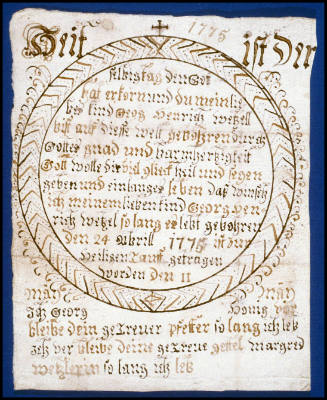 1775
Zeit ist Der
selbig tag den Got
hat erkorn und du mein lie
bes kind Georg Henrich Wetzell
bist auf diesse welt gebohren durch
Gottes gnad und barmhertzigkeit
Gott wolle dir viel glick heil und segen
geben und ein langes leben das winsch
ich meinem lieben kind Georg Hen
rich wetzel so lang er lebt gebohren
den 24 Abrill 1775 ist zur
Heiligen Tauff getragen
worden den 11
may may
Ich Georg Honig
bleibe dein getreuer pfetter so lang ich leb
Ich bleibe deine getreue gettel margred
wetzlerin so lang ich leb